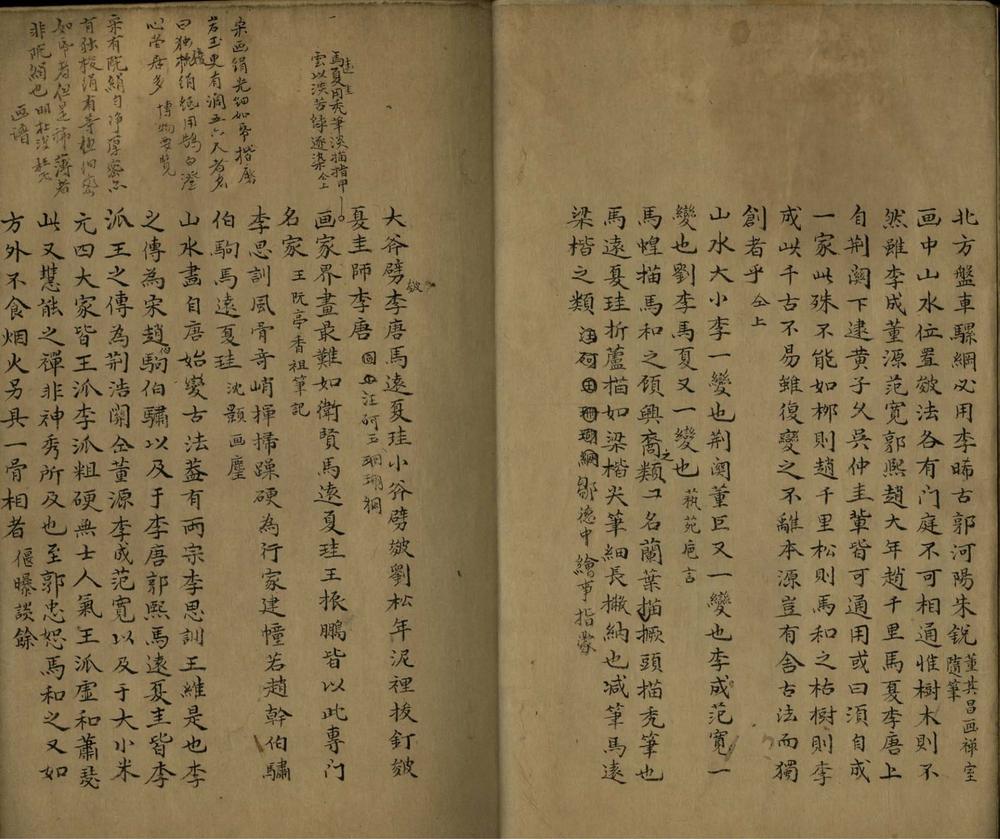 北方盤車騾綱必用李晞古郭河陽朱銳 董其昌画禅室隨筆
画中山水位置皴法各有门庭不可相通惟樹木則不
然雖李成董源范寬郭熙趙大年趙千里馬夏李唐上
自荆関下逮黄子久吳仲圭輩皆可通用或曰須自成
一家此殊不能如栁則趙千里松則馬和之枯樹則李
成此千古不易雖復變之不離本源豈有舍古法而獨
創者乎 仝上
山水大小李一變也荆関董巨又一變也李成范寬一
變也劉李馬夏又一變也 蓺苑巵言
馬蝗描馬和之顾興裔之類一名蘭葉描橛頭描秃筆也
馬遠夏珪折蘆描如梁楷尖筆細長撇納也减筆馬遠
梁楷之類 汪砢玉珊瑚綱 鄒德中繪事指蒙
馬遠夏圭用秃筆淡描指甲
雲以淡苦緑逐染 仝上
大斧劈皴李唐馬遠夏珪小斧劈皴劉松年泥裡拔釘皴
夏圭師李唐 汪砢玉珊瑚綱
画家界畫最難如衛賢馬遠夏珪王振鵬皆以此專门
名家 王阮亭香祖筆記
李思訓風骨奇峭揮掃躁硬為行家建幢若趙幹伯驌
伯駒馬遠夏珪 沈顥画麈
山水畫自唐始變古法葢有兩宗李思訓王維是也李
之傳為宋趙伯駒伯驌以及于李唐郭熙馬遠夏圭皆李
派王之傳為荆浩関仝董源李成范寬以及于大小米
元四大家皆王派李派粗硬無士人氣王派虛和蕭㪚
此又慧能之禪非神秀所及也至郭忠恕馬和之又如
方外不食烟火另具一骨相者 偃曝談餘
宋画绢光细如帋揩磨
若玉更有濶五六尺者名
曰独梭绢
心堂居多 博物要覽
宋有院絹匀净厚密亦
有独梭绢有等极细密
如帋者但是稀薄者
非院絹也
画譜